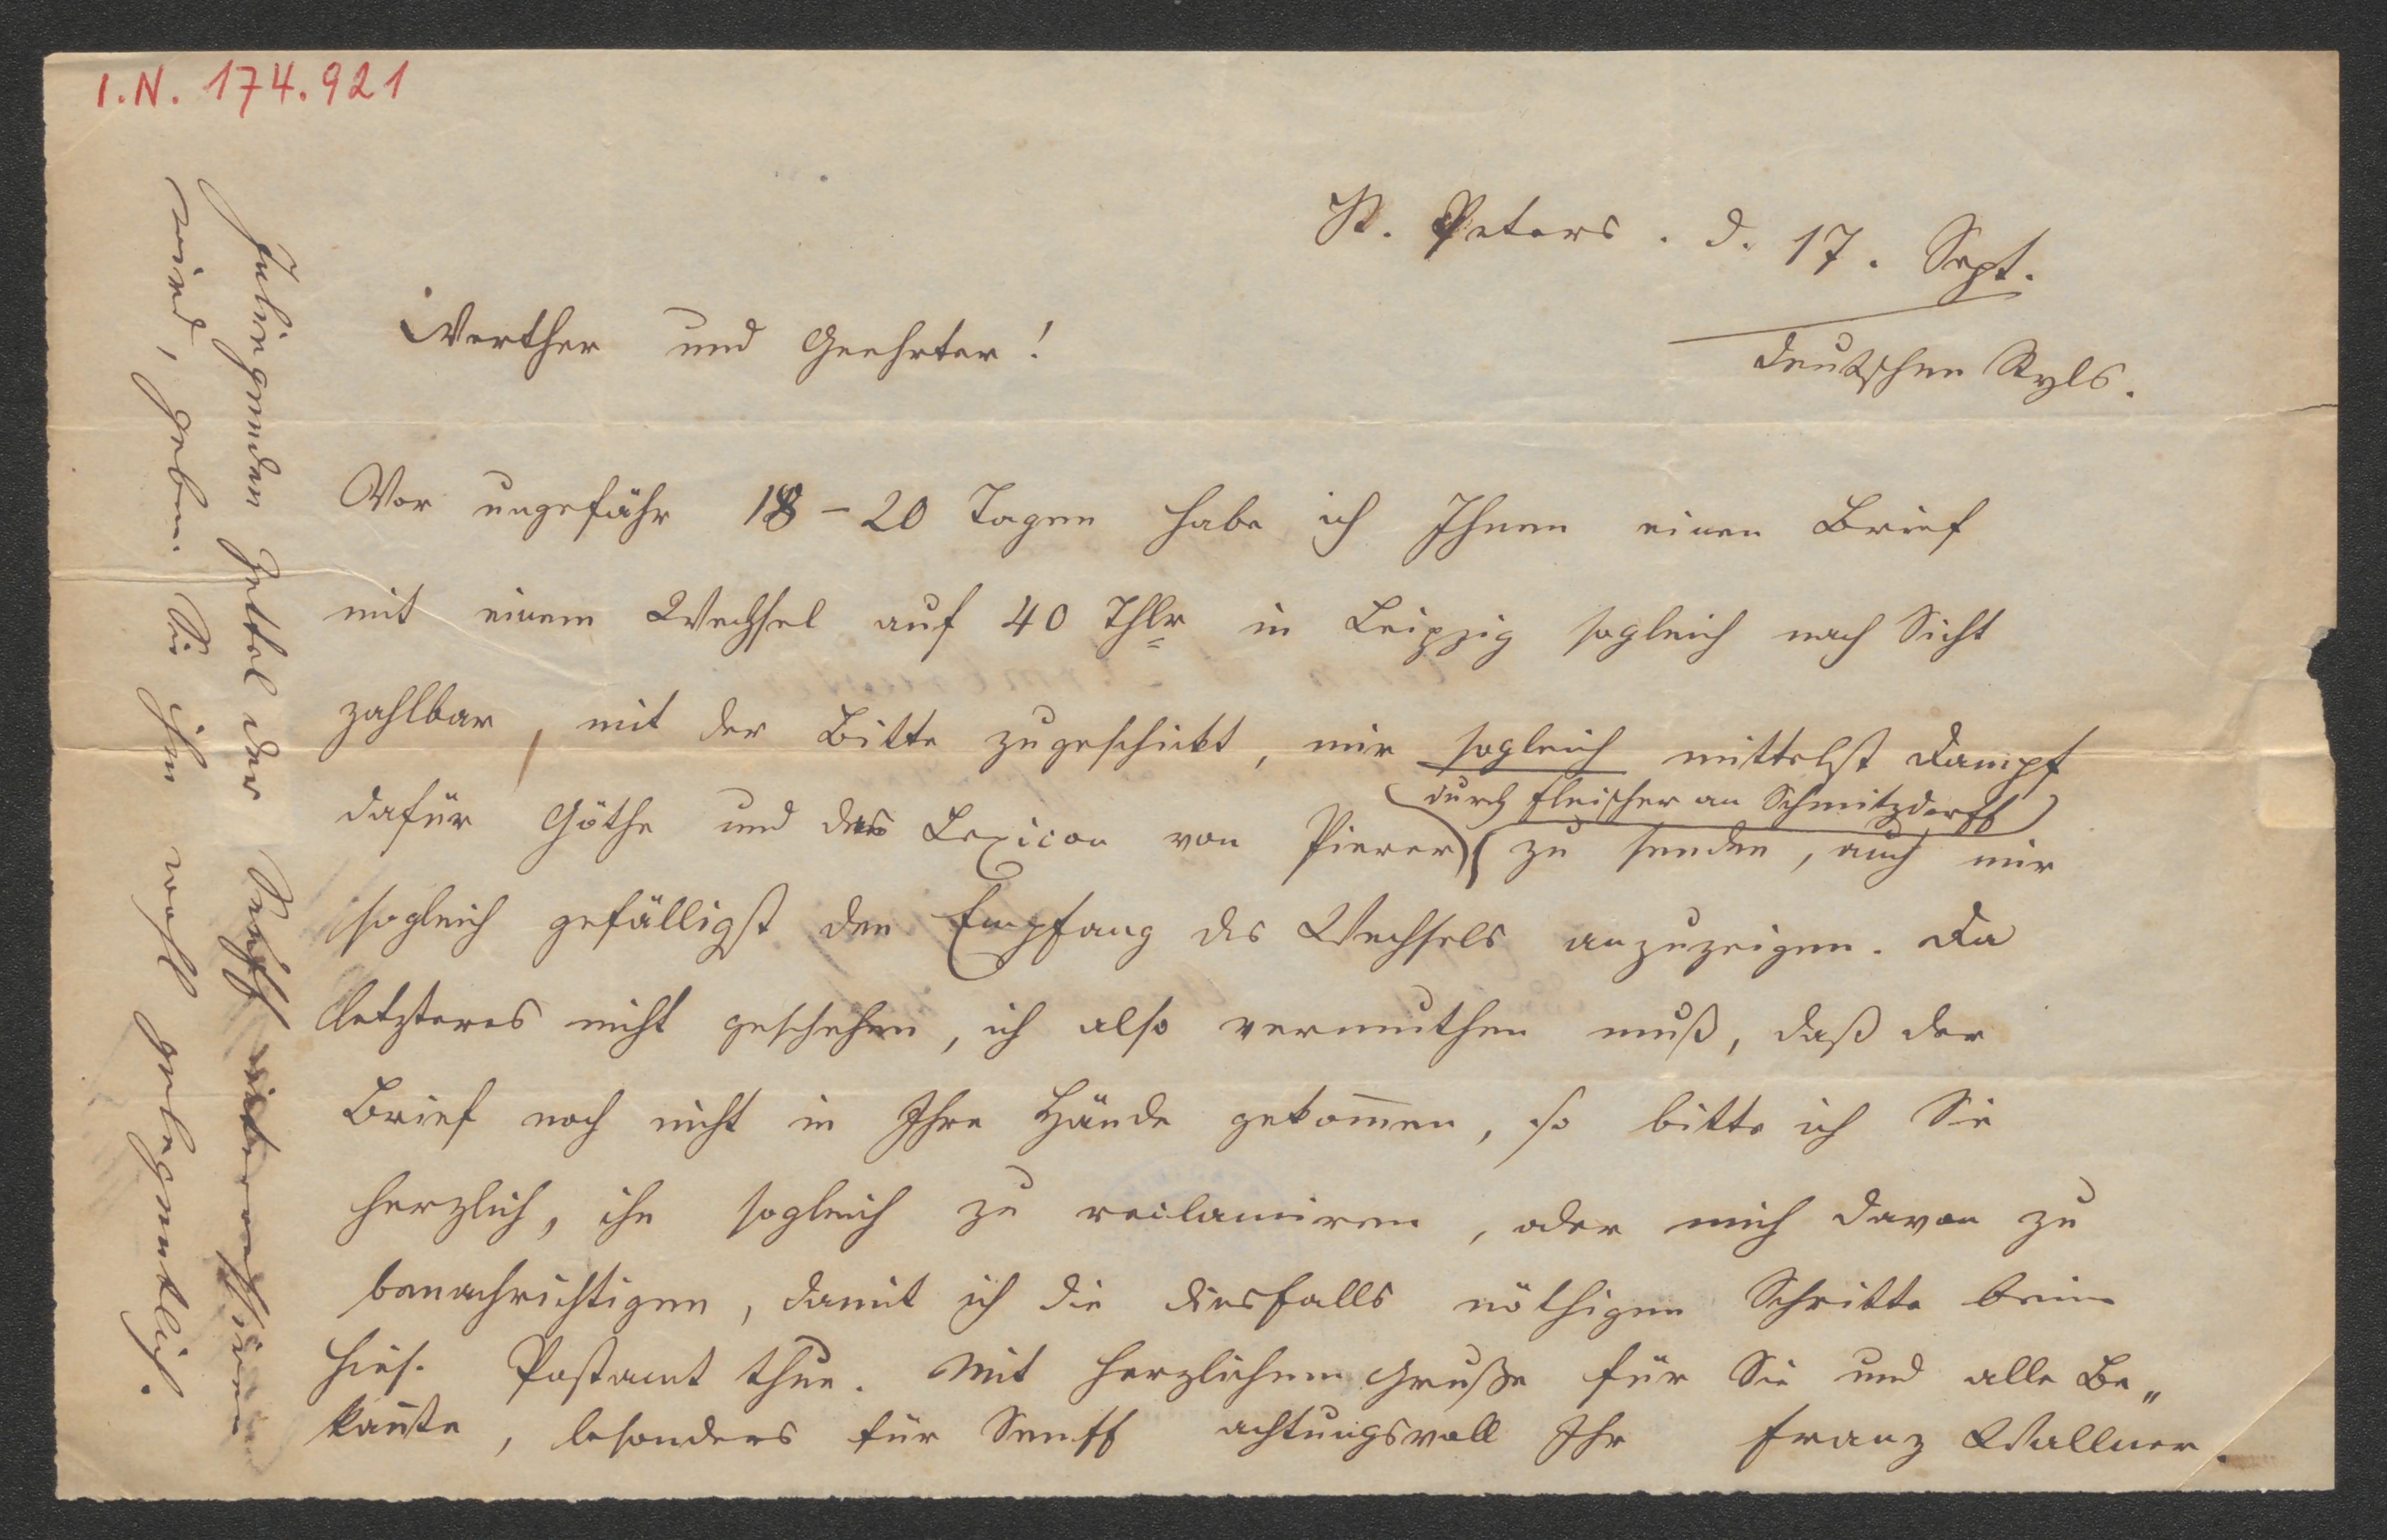 I.N. 174.921
St. Peters. d. 17. Sept.
deutschen Styls.
Werther und Geehrter!
Vor ungefähr 18-20 Tagen habe ich Ihnen einen Brief
mit einem Wechsel auf 40 Thlr in Leipzig sogleich nach Sicht
zahlbar, mit der Bitte zugeschickt, mir sogleich mittelst Dampf
(durch Fleischer an Schmitzdorff)
dafür Göthe und das Lexicon von Pierer zu senden, auch mir
sogleich gefälligst den Empfang des Wechsels anzuzeigen. Da
letzteres nicht geschehen, ich also vermuthen muß, daß der
Brief noch nicht in Ihre Hände gekom̄en, so bitte ich Sie
herzlich, ihn sogleich zu reclamiren, oder mich davon zu
benachrichtigen, damit ich die diesfalls nöthigen Schritte beim
hies. Postamt thue. Mit herzlichem Gruße für Sie und alle Be„
kan̄te, besonders für Senff achtungsvoll Ihr Franz Wallner.
Inliegenden Zettel der Senff interessiren
wird, geben Sie ihm wohl gelegentlich.